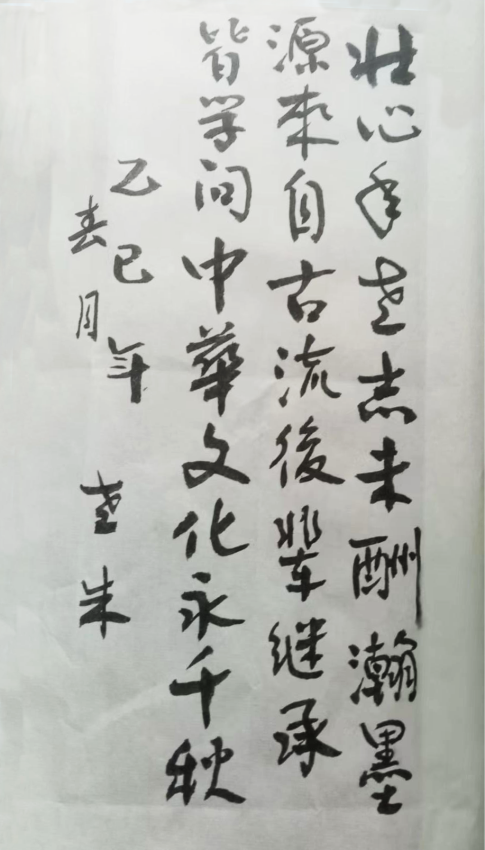 壮心年老志未酬瀚墨
源來自古流後輩继承
皆学问中華文化永千秋
乙巳年 老朱
春月